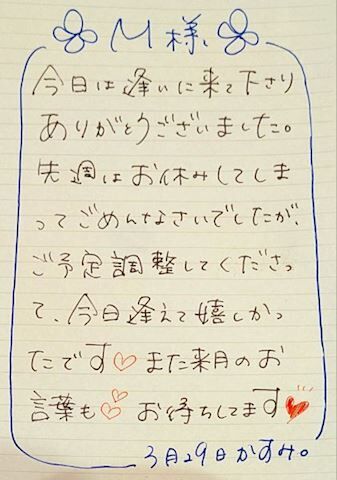 M様
今日は逢いに来て下さり
ありがとうございました。
先週はお休みしてしま
ってごめんなさいでしたが、
ご予定調整してくださっ
て、今日逢えて嬉しかっ
たです♡また来月のお
言葉も♡♡お待ちしてます♥
3月29日かすみ。